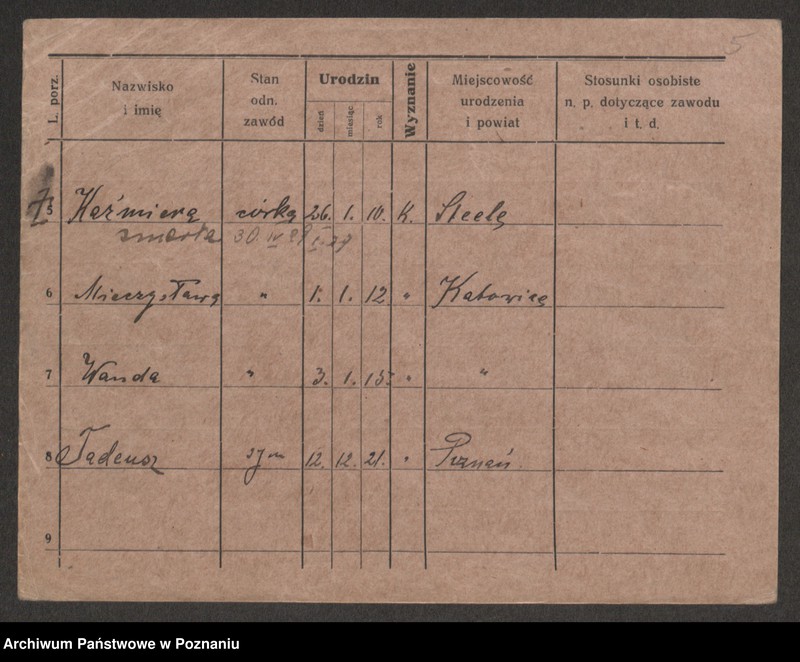 5
L. porz.
Nazwisko
i imię
Stan
odn.
zawód
Urodzin
dzień
miesiąc
rok
Wyznanie
Miejscowość
urodzenia
i powiat
Stosunki osobiste
n. p. dotyczące zawodu
i t. d.
5 Kaźmierą córką 26. 1. 10. K. Steelę
zmarła 30. IV 29
6 Mieczysławą " 1. 1. 12 " Katowicę
7 Wanda " 3. 1. "  "
8 Tadeusz syn 12. 12. 21. " Poznań.
9
Archiwum Państwowe w Poznaniu